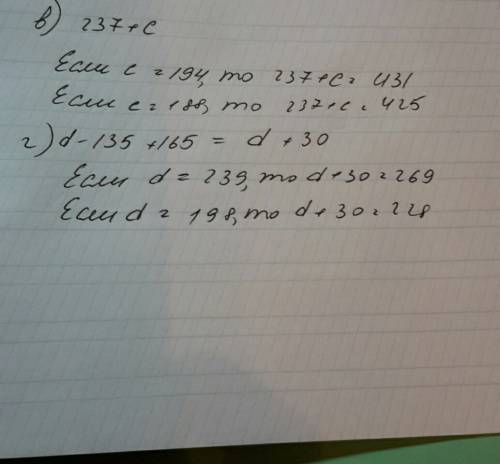 в) 237+с
Если с = 194, то 237+с = 431
Если с = 188, то 237+с = 425
г) d - 135 + 165 = d + 30
Если d = 239, то d + 30 = 269
Если d = 198, то d + 30 = 228